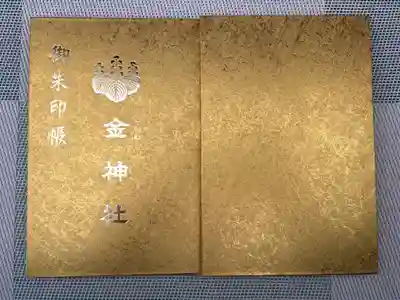 金神社
御朱印帳